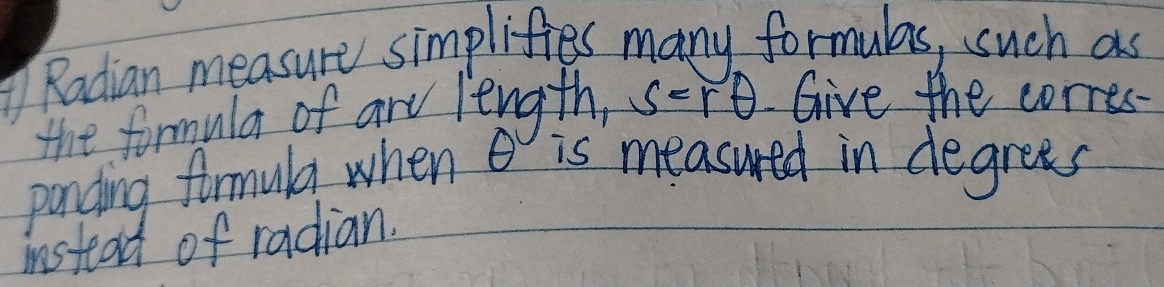 7) Radian measure simplifies many formulas, such as
the formula of arc length, s=rθ. Give the corres-
ponding formula when θ is measured in degrees
instead of radian.